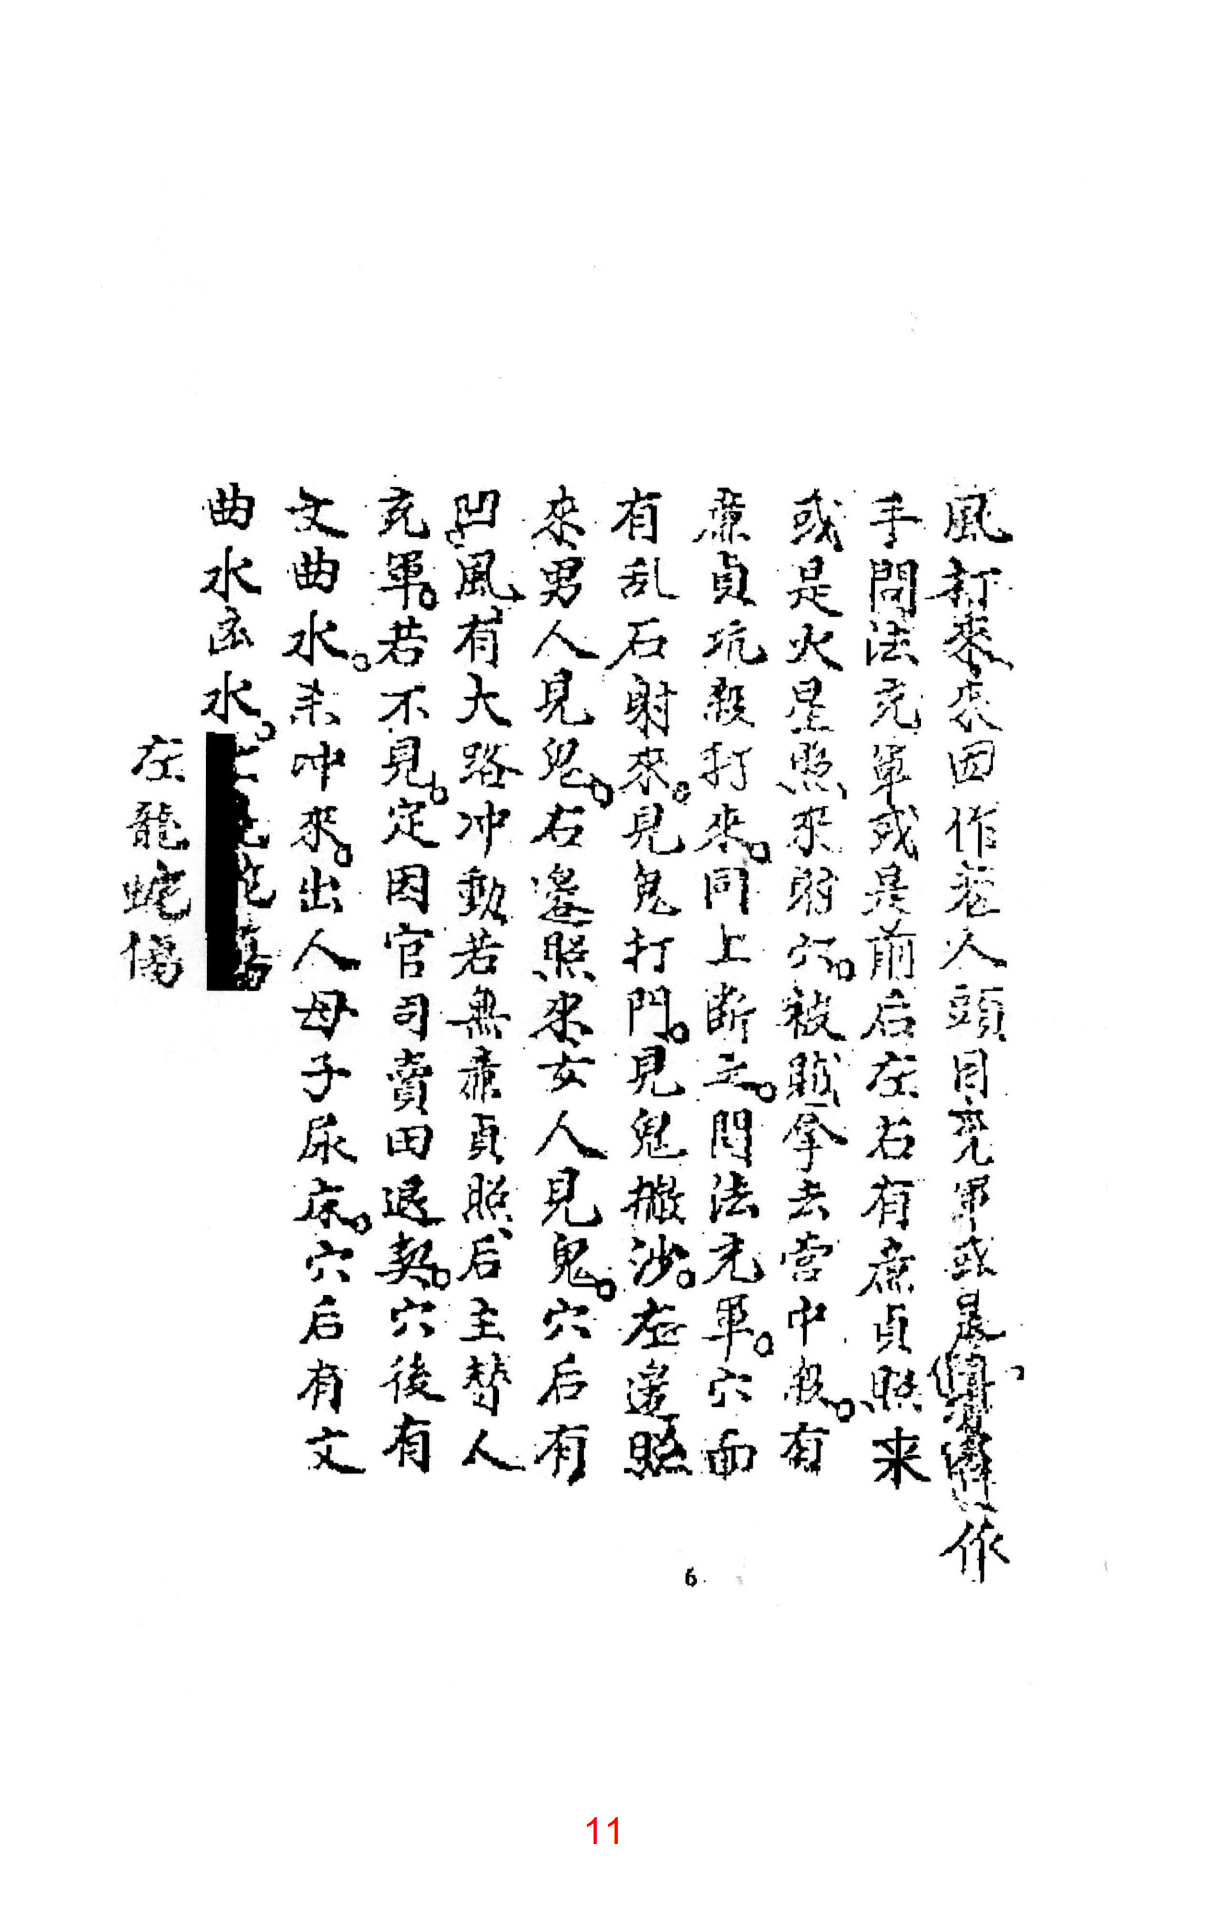 風打來來因作巷人頭目充軍或是作
手問法充軍或是前后左右有廉貞照来
或是火星照來射穴。被賊拿去营中殺。有
廉貞坑殺打來。同上断之。問法充軍。穴面
有乱石射來。見鬼打門。見鬼撒沙。左邊照
來男人見鬼。右邊照來女人見鬼。穴后有
凹風有大路冲動若無廉貞照后主替人
充軍。若不見。定因官司賣田退契。穴後有
文曲水。来冲來。出人母子尿床。穴后有文
曲水水。
左龍蛇傷
6
11